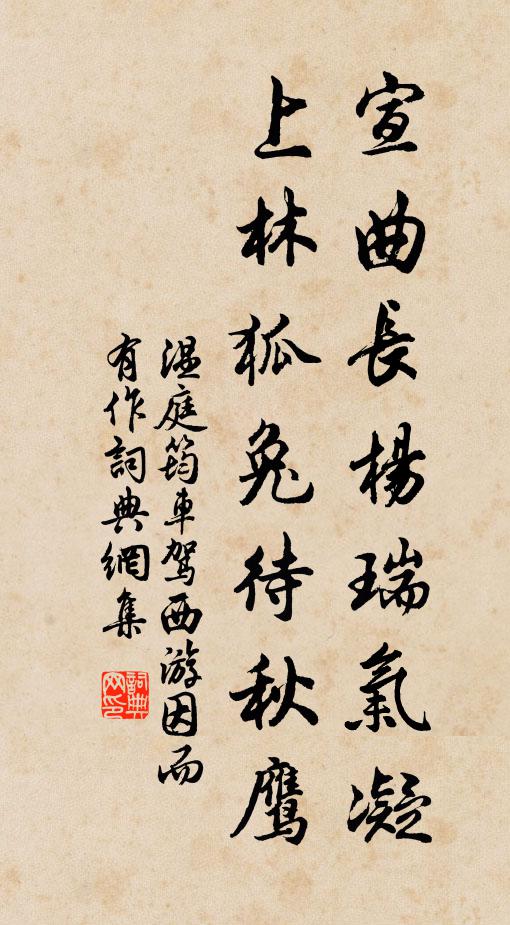 宣曲長楊瑞氣凝
上林狐兔待秋鷹
溫庭筠車駕西游因而
有作詞典網集
詞典
网印